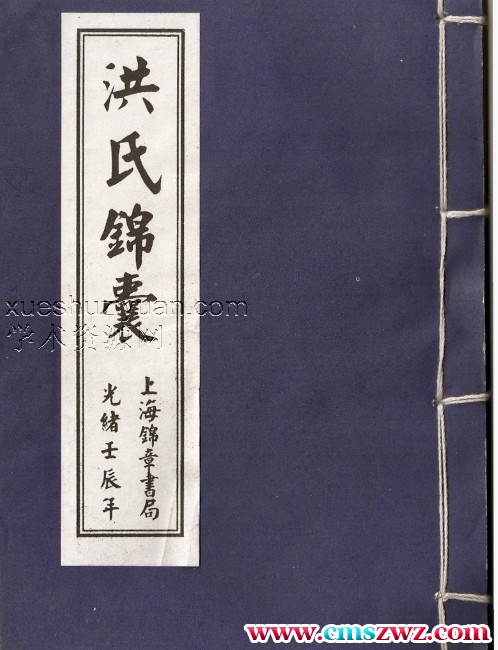 洪氏錦囊
上海錦章書局
光緒壬辰年
xueshuziyuan.com
学术资源网
www.cmszwz.com